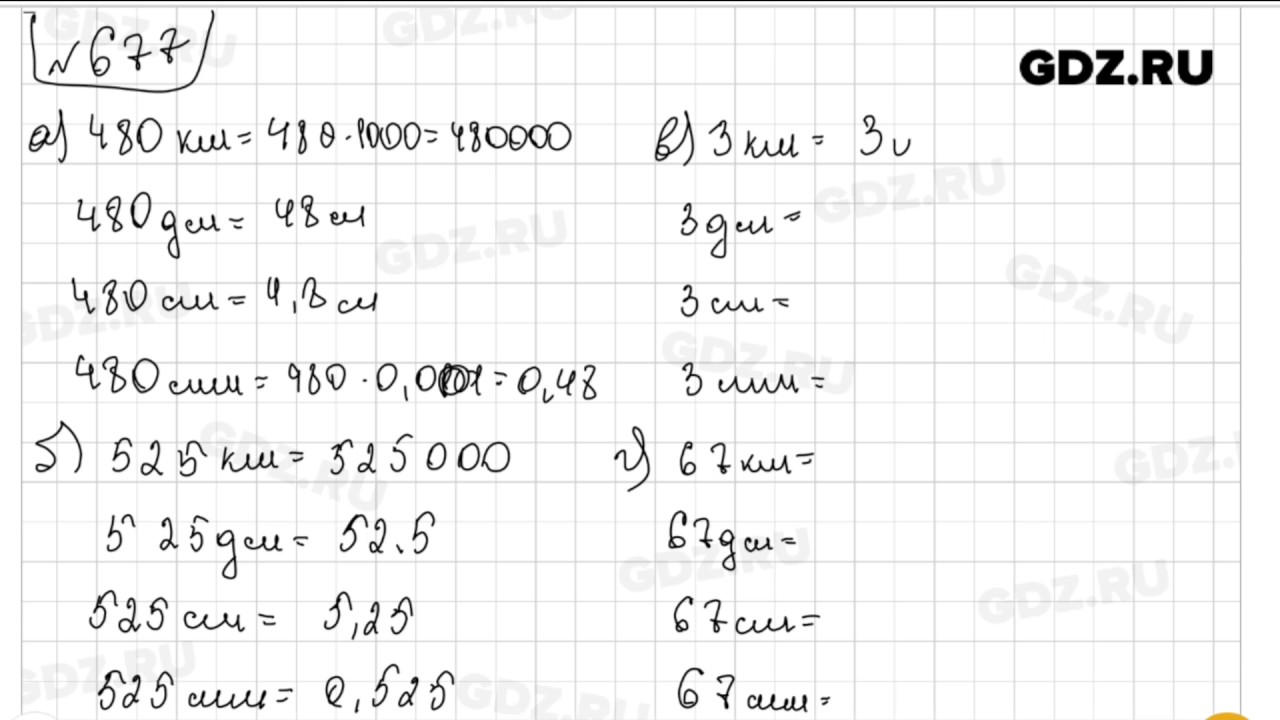 № 677
GDZ.RU
а) 480 км = 480 · 1000 = 480000
480 дм = 48 м
480 см = 4,8 м
480 мм = 480 · 0,001 = 0,48
б) 525 км = 525000
525 дм = 52.5
525 см = 5,25
525 мм = 0,525
в) 3 км = 3
3 дм =
3 см =
3 мм =
г) 67 км =
67 дм =
67 см =
67 мм =